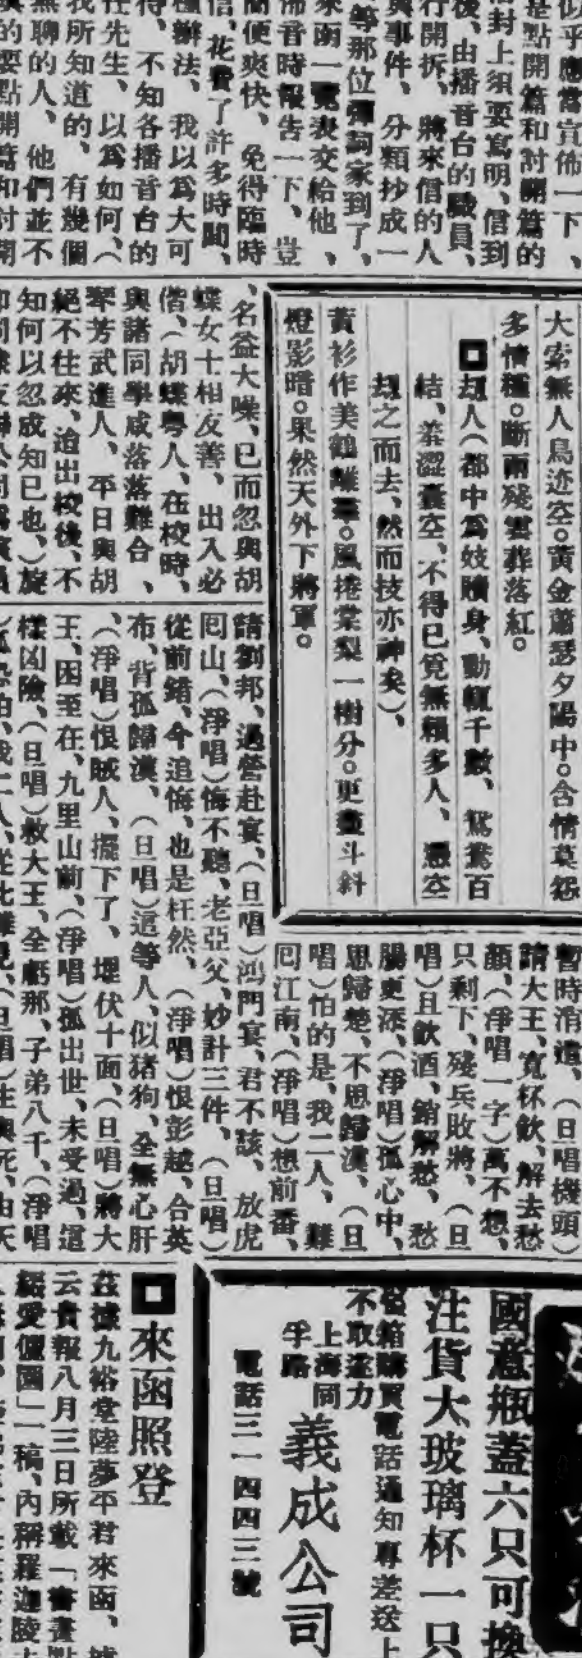 似乎應當宣佈一下、
是點開篇和討開篇的
信封上須要寫明、信到
後、由播音台的職員、
行開拆、將來信的人
與事件、分類抄成一
等那位彈詞家到了、
來函一覽表交給他、
佈音時報告一下、豈
簡便爽快、免得臨時
信、花費了許多時間、
種辦法、我以爲大可
待、不知各播音台的
任先生、以爲如何、(
我所知道的、有幾個
無聊的人、他們並不
的要點開篇和討開
大索無人鳥迹空。黃金蕭瑟夕陽中。含情莫怨
多情種。斷雨殘雲葬落紅。
刧人(都中爲妓贖身、動輒千數、鴛鴦百
結、羞澀囊空、不得已覓無賴多人、憑空
刧之而去、然而技亦神矣)、
黃衫作美鶴離羣。風捲棠梨一樹分。更盡斗斜
燈影暗。果然天外下將軍。
、名益大噪、已而忽與胡
蝶女士相友善、出入必
偕、(胡蝶粵人、在校時、
與諸同學咸落落難合、
琴芳武進人、平日與胡
絕不往來、迨出校後、不
知何以忽成知己也、)旋
暫時消遣、(旦唱機頭)
請大王、寬杯飲、解去愁
顏、(淨唱一字)萬不想、
只剩下、殘兵敗將、(旦
唱)且飲酒、銷解愁、愁
腸更添、(淨唱)孤心中、
思歸楚、不思歸漢、(旦
唱)怕的是、我二人、難
囘江南、(淨唱)想前番、
請劉邦、過營赴宴、(旦唱)鴻門宴、君不該、放虎
囘山、(淨唱)悔不聽、老亞父、妙計三件、(旦唱)
從前錯、今追悔、也是枉然、(淨唱)恨彭越、合英
布、背孤歸漢、(旦唱)這等人、似猪狗、全無心肝
、(淨唱)恨賊人、擺下了、埋伏十面、(旦唱)將大
王、困至在、九里山前、(淨唱)孤出世、未受過、這
樣凶險、(旦唱)救大王、全虧那、子弟八千、(淨唱
國意瓶蓋六只可換
注貨大玻璃杯一只
箱購買電話通知專差送上
不取送力
上海同
孚路
義成公司
電話三一四四三號
來函照登
茲據九裕堂陸夢平君來函、
云貴報八月三日所載「書畫點
愛儷園」一稿、內稱羅迦陵